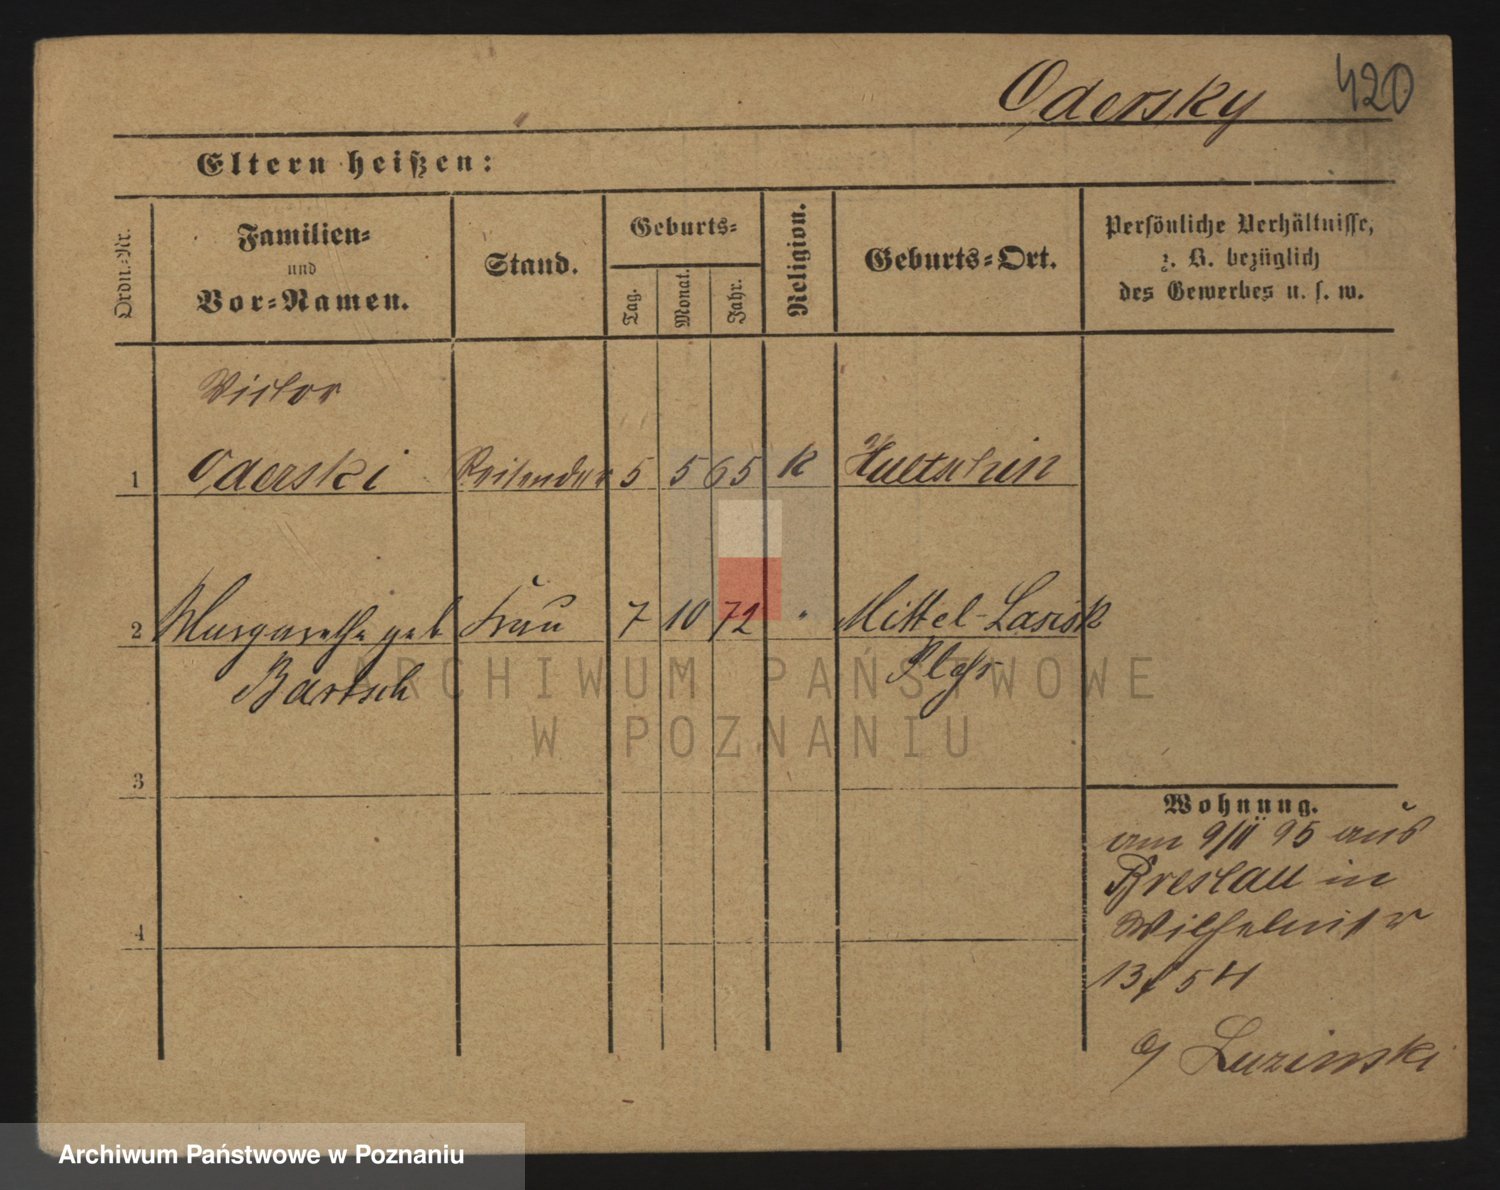 Odersky 420
Eltern heißen:
Ordn.-Nr.
Familien-
und
Vor-Namen.
Stand.
Geburts-
Tag.
Monat.
Jahr.
Religion.
Geburts-Ort.
Persönliche Verhältnisse,
z. B. bezüglich
des Gewerbes u. s. w.
Victor
1 Oderski Reisender 5 5 65 K Hultschin
2 Margarethe geb Frau 7 10 72 " Mittel-Lasisk
Bartsch
ARCHIWUM PAŃSTWOWE
W POZNANIU
3
4
Wohnung.
am 9/II 95 aus
Breslau in
Wilhelmstr
13
Luzinski
Archiwum Państwowe w Poznaniu